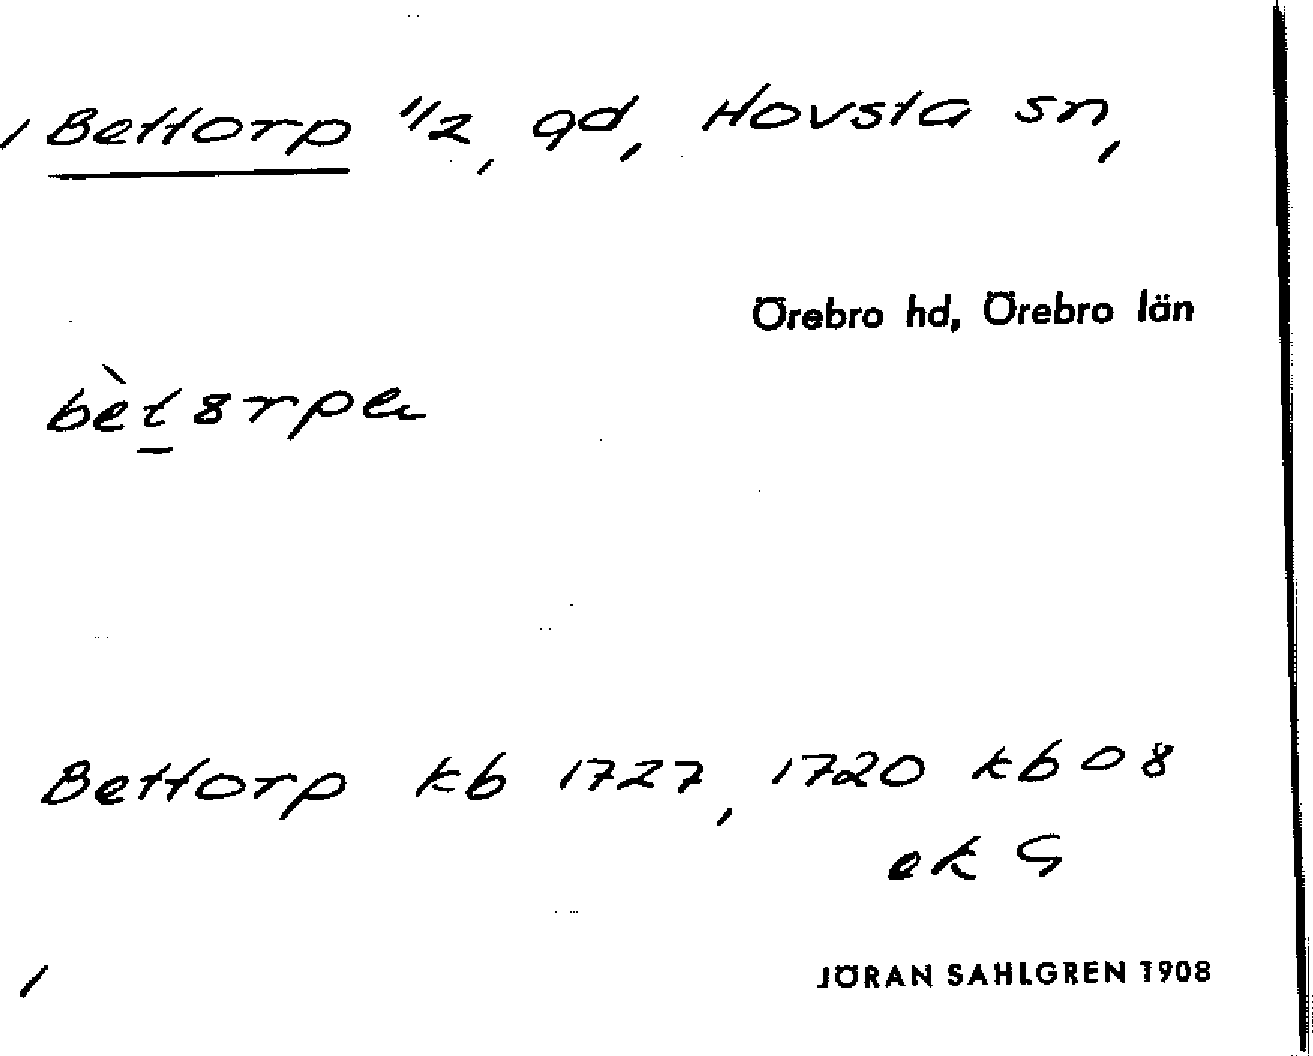 Bettorp 1/2, gd, Hovsta sn,
Örebro hd, Örebro län
bèt8rpa
Bettorp kb 1727, 1720 kb 08
ek G
JÖRAN SAHLGREN 1908